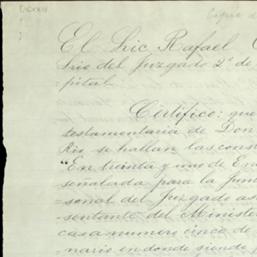 Copia d
El Lic Rafael
rio del Juzgado 2º de
pital.
Certifico: que
testamentaria de Don
Rio se hallan las cons
"En treinta y uno de En
señalada para la jun
sonal del Juzgado as
sentante del Ministe
casa numero cinco de
nario en donde siendo